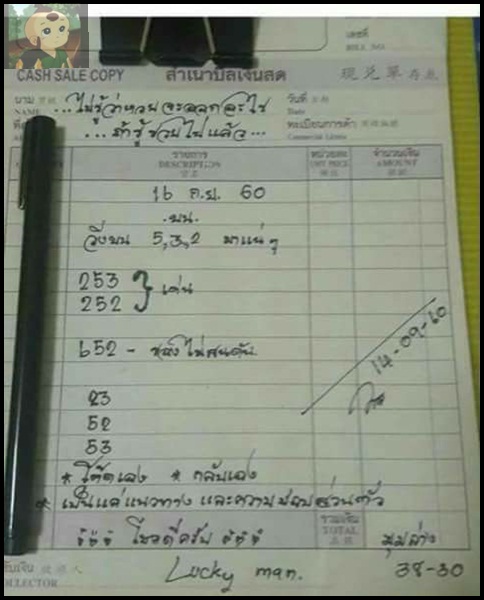 เลขที่
BILL NO.
CASH SALE COPY สำเนาบิลเงินสด 現兌單存底
นาม
NAME ...ไม่รู้ว่าหวยจะออกอะไร วันที่
Date
...ถ้ารู้รวยไปแล้ว... ทะเบียนการค้า
รายการ หน่วยละ จำนวนเงิน
DESCRIPTION UNIT PRICE AMOUNT
16 ก.ย. 60
.บน.
วิ่งบน 5,3,2 มาแน่ๆ
253
252 } เด่น
652 - หลังไม่สนต้น
14-09-60
23
52
53
* โต๊ดเอง * กลับเอง
* เป็นแค่แนวทาง และความชอบส่วนตัว
โชคดีครับ รวมเงิน
TOTAL มุมล่าง
รับเงิน
COLLECTOR Lucky man. 38-30